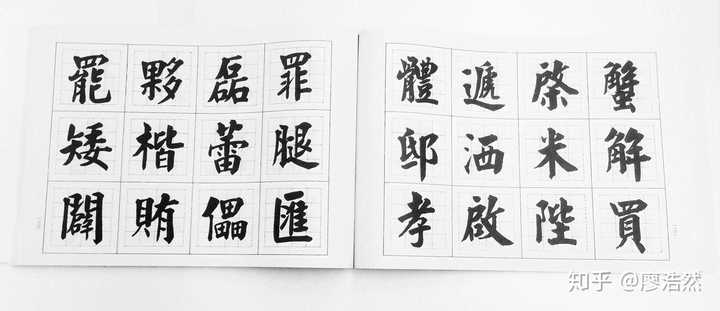 蟹解買
棨米陛
遞洒啟
體邸孝
罪腿匯
磊蕾儡
夥楷賄
罷矮闢
知乎 @廖浩然